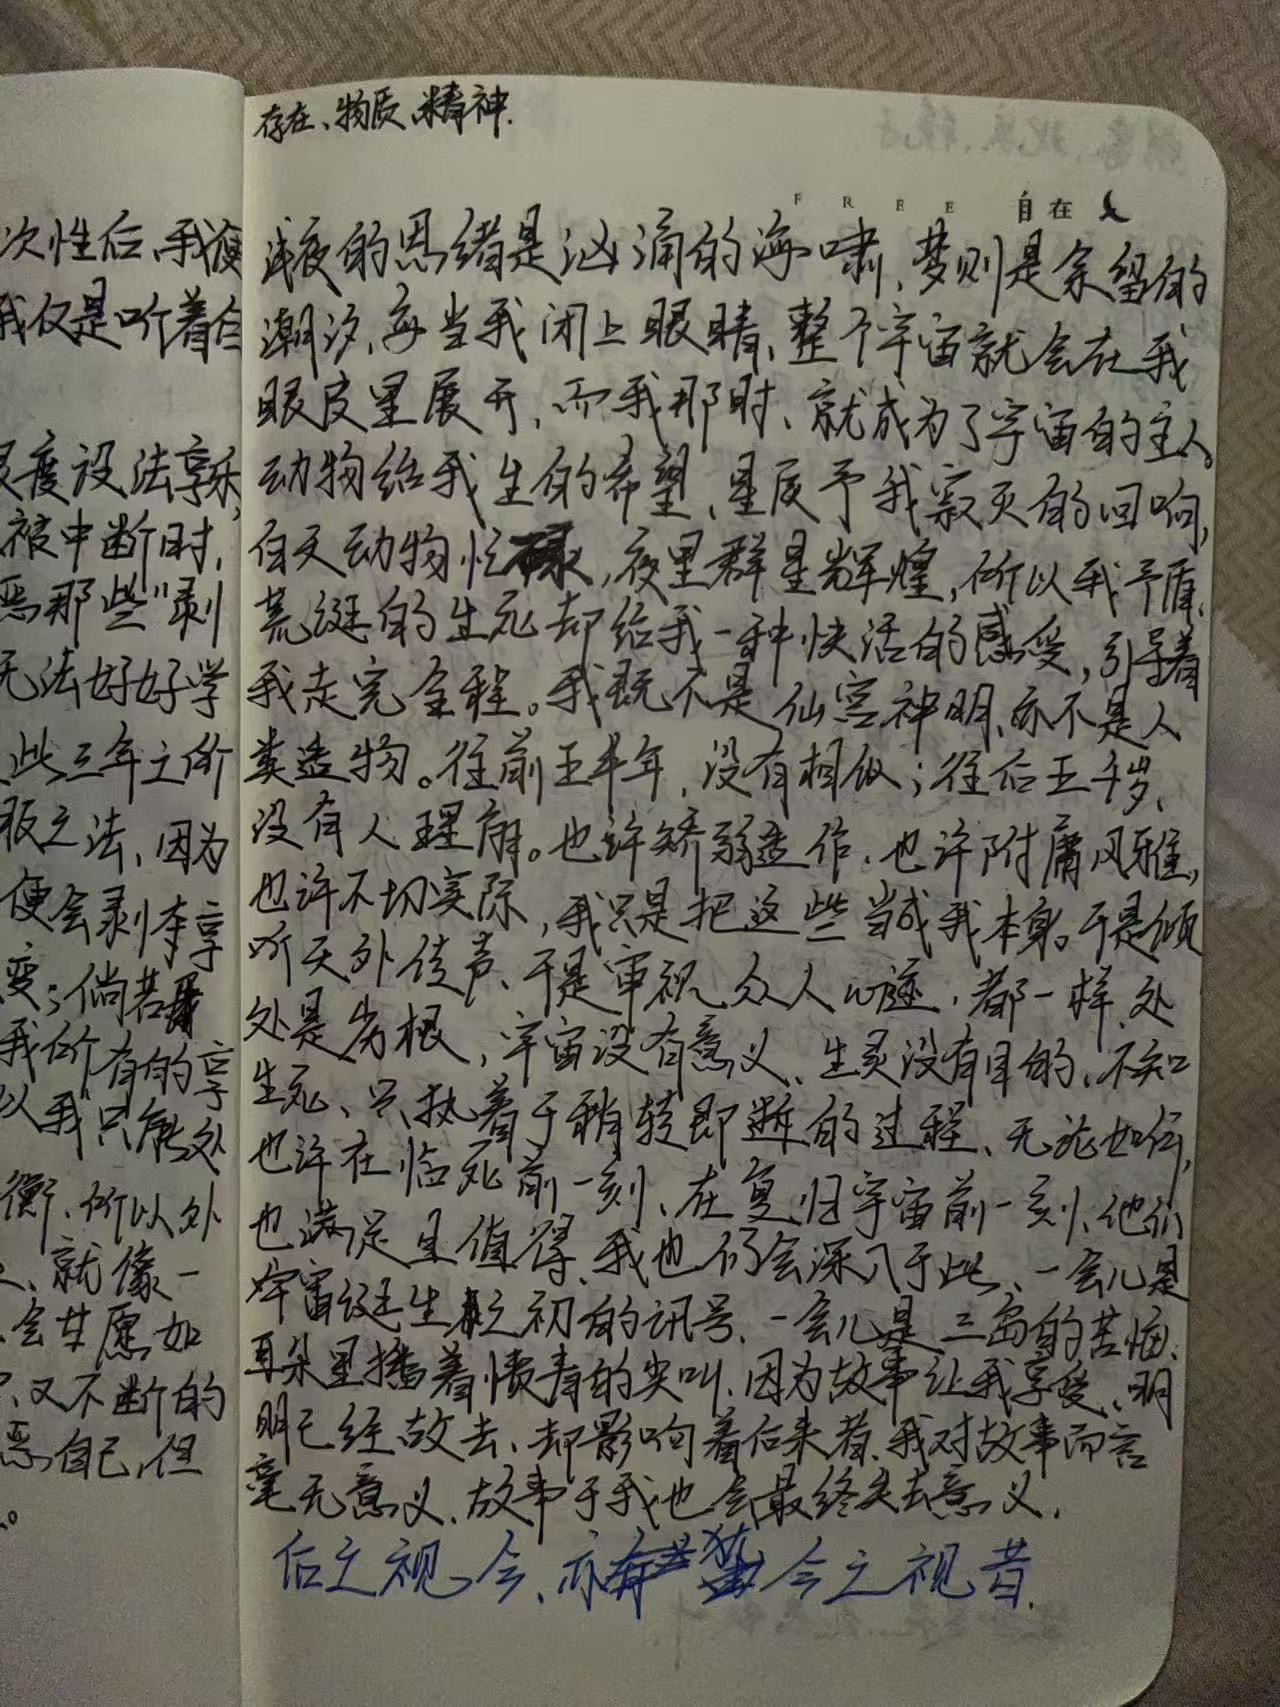 存在、物质、精神.
FREE 自在
次性后、我便
我仅是听着自
度设法享乐,
被中断时,
恶那些"剥
无法好好学
些三年之价
板之法、因为
便会剥夺享
变；倘若
我所有的享
以我只能处
衡、所以处
、就像一
会甘愿如
又不断的
恶自己,但
。
浅夜的思绪是汹涌的海啸、梦则是余留的
潮汐、每当我闭上眼睛、整个宇宙就会在我
眼皮里展开、而我那时、就成为了宇宙的主人。
动物给我生的希望、星辰予我寂灭的回响,
白天动物忙碌,夜里群星辉煌,所以我矛盾、
荒诞的生死却给我一种快活的感受,引导着
我走完全程。我既不是仙宫神明、亦不是人
类造物。往前五千年,没有相似；往后五千岁、
没有人理解。也许矫弱造作、也许附庸风雅,
也许不切实际,我只是把这些当成我本身。于是倾
听天外传声、于是审视众人心迹,都一样、处
处是劣根,宇宙没有意义、生灵没有目的、不知
生死、只执着于稍转即逝的过程、无论如何,
也许在临死前一刻、在复归宇宙前一刻、他们
也满足且值得、我也仍会深入于此、一会儿是
宇宙诞生之初的讯号、一会儿是三岛的苦恼、
耳朵里播着愤青的尖叫、因为故事让我享受、明
明已经故去、却影响着后来者、我对故事而言
毫无意义、故事于我也会最终失去意义,
后之视今、亦犹今之视昔.